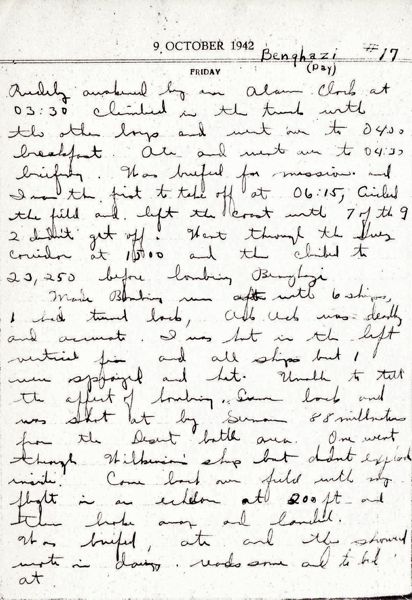 9 OCTOBER 1942 Benghazi #17
(Day)
FRIDAY
Rudely awakened by an Alarm Clock at
03:30 climbed in the truck with
the other boys and went over to 04:00
breakfast. Ate and went over to 04:30
briefing. Was briefed for mission and
I was the first to take off at 06:15, Circled
the field and left the coast with 7 of the 9
2 didn't get off. Went through the
corridor at 1500 and then climbed to
23,250 before bombing Benghazi
Made Bombing run with 6 ships,
1 had turned back, Ack Ack was deadly
and accurate. I was hit in the left
vertical fin and all ships but 1
were sprayed and hit. Unable to tell
the affect of bombing. Swung back and
was shot at by German 88 millimeters
from the Desert battle area. One went
through Wilkinson's ship but didn't explode
inside. Came back over field with my
flight in an echelon at 200 ft and
then broke away and landed.
Was briefed, ate and then showered
wrote in diary. reads some and to bed
at